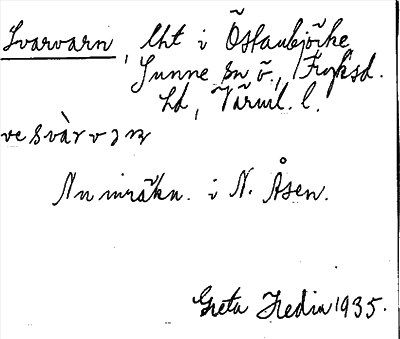 Svarvarn, lht i Östanbjörke,
Sunne sn ö., Fryksd.
hd, Värml. l.
Nu inräkn. i N. Åsen.
Greta Hedin 1935.